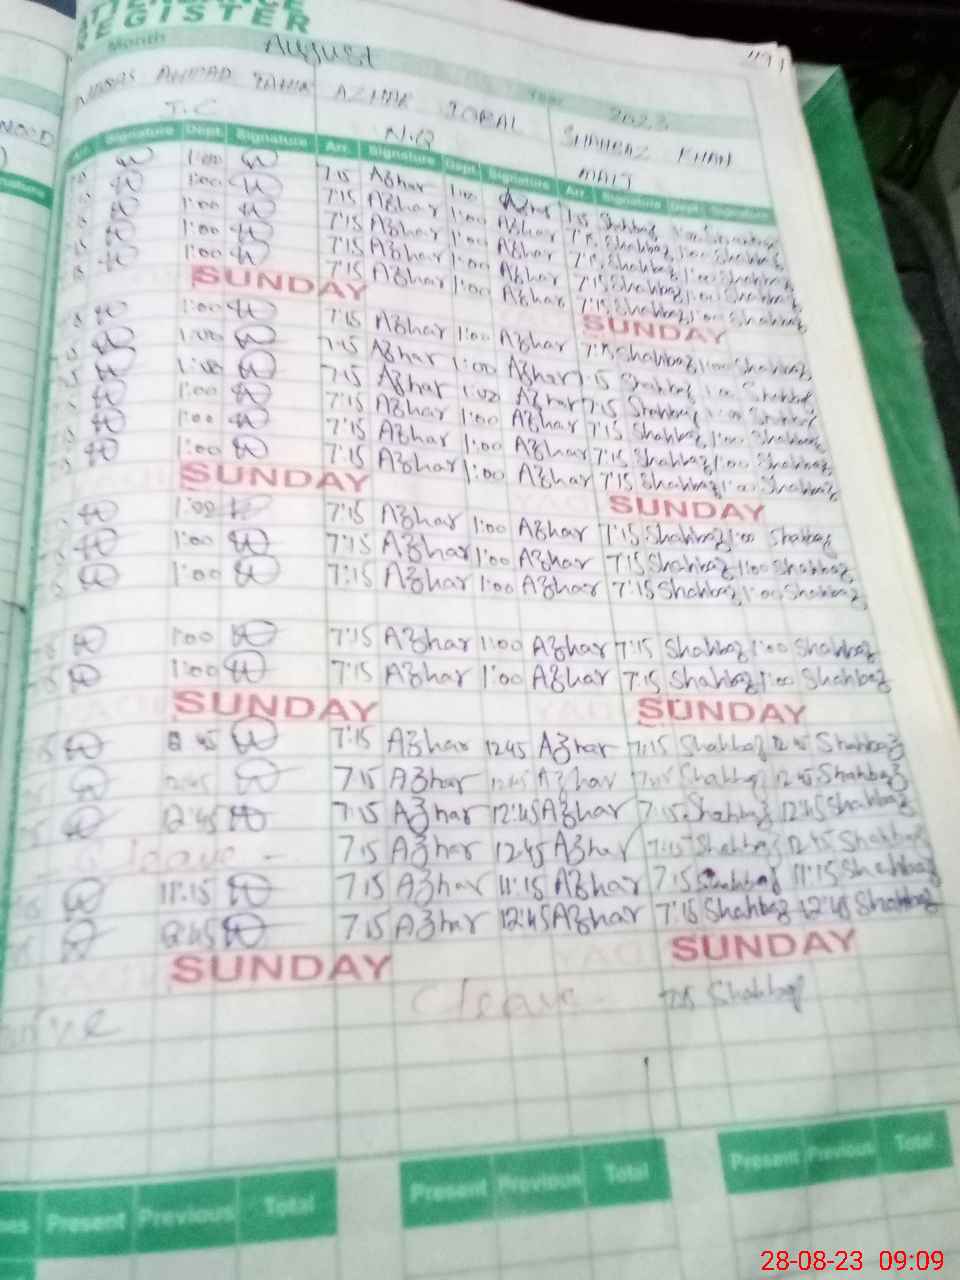 REGISTER
Month August
Year 2023
AHMAD TAHIR AZHAR IQBAL SHAHBAZ KHAN
T.C N.Q
Signature Dept. Signature Arr. Signature Dept. Signature Arr. Signature Dept. Signature
1:00 7:15 Azhar 1:00 Azhar 7:15 Shahbaz 1:00
1:00 7:15 Azhar 1:00 Azhar 7:15 Shahbaz 1:00 Shahbaz
1:00 7:15 Azhar 1:00 Azhar 7:15 Shahbaz 1:00 Shahbaz
1:00 7:15 Azhar 1:00 Azhar 7:15 Shahbaz 1:00 Shahbaz
1:00 7:15 Azhar 1:00 Azhar 7:15 Shahbaz 1:00 Shahbaz
SUNDAY SUNDAY
1:00 7:15 Azhar 1:00 Azhar 7:15 Shahbaz 1:00 Shahbaz
1:00 7:15 Azhar 1:00 Azhar 7:15 Shahbaz 1:00 Shahbaz
1:00 7:15 Azhar 1:00 Azhar 7:15 Shahbaz 1:00 Shahbaz
1:00 7:15 Azhar 1:00 Azhar 7:15 Shahbaz 1:00 Shahbaz
1:00 7:15 Azhar 1:00 Azhar 7:15 Shahbaz 1:00 Shahbaz
1:00 7:15 Azhar 1:00 Azhar 7:15 Shahbaz 1:00 Shahbaz
SUNDAY SUNDAY
1:00 7:15 Azhar 1:00 Azhar 7:15 Shahbaz 1:00 Shahbaz
1:00 7:15 Azhar 1:00 Azhar 7:15 Shahbaz 1:00 Shahbaz
1:00 7:15 Azhar 1:00 Azhar 7:15 Shahbaz 1:00 Shahbaz
1:00 7:15 Azhar 1:00 Azhar 7:15 Shahbaz 1:00 Shahbaz
1:00 7:15 Azhar 1:00 Azhar 7:15 Shahbaz 1:00 Shahbaz
SUNDAY SUNDAY
7:15 Azhar 12:45 Azhar 7:15 Shahbaz 12:45 Shahbaz
7:15 Azhar 12:45 Azhar 7:15 Shahbaz 12:45 Shahbaz
12:45 7:15 Azhar 12:45 Azhar 7:15 Shahbaz 12:45 Shahbaz
C leave - 7:15 Azhar 12:45 Azhar 7:15 Shahbaz 12:45 Shahbaz
11:15 7:15 Azhar 11:15 Azhar 7:15 Shahbaz 11:15 Shahbaz
7:15 Azhar 12:45 Azhar 7:15 Shahbaz 12:45 Shahbaz
SUNDAY SUNDAY
C leave - 7:15 Shahbaz
Present Previous Total Present Previous Total Present Previous Total
28-08-23 09:09